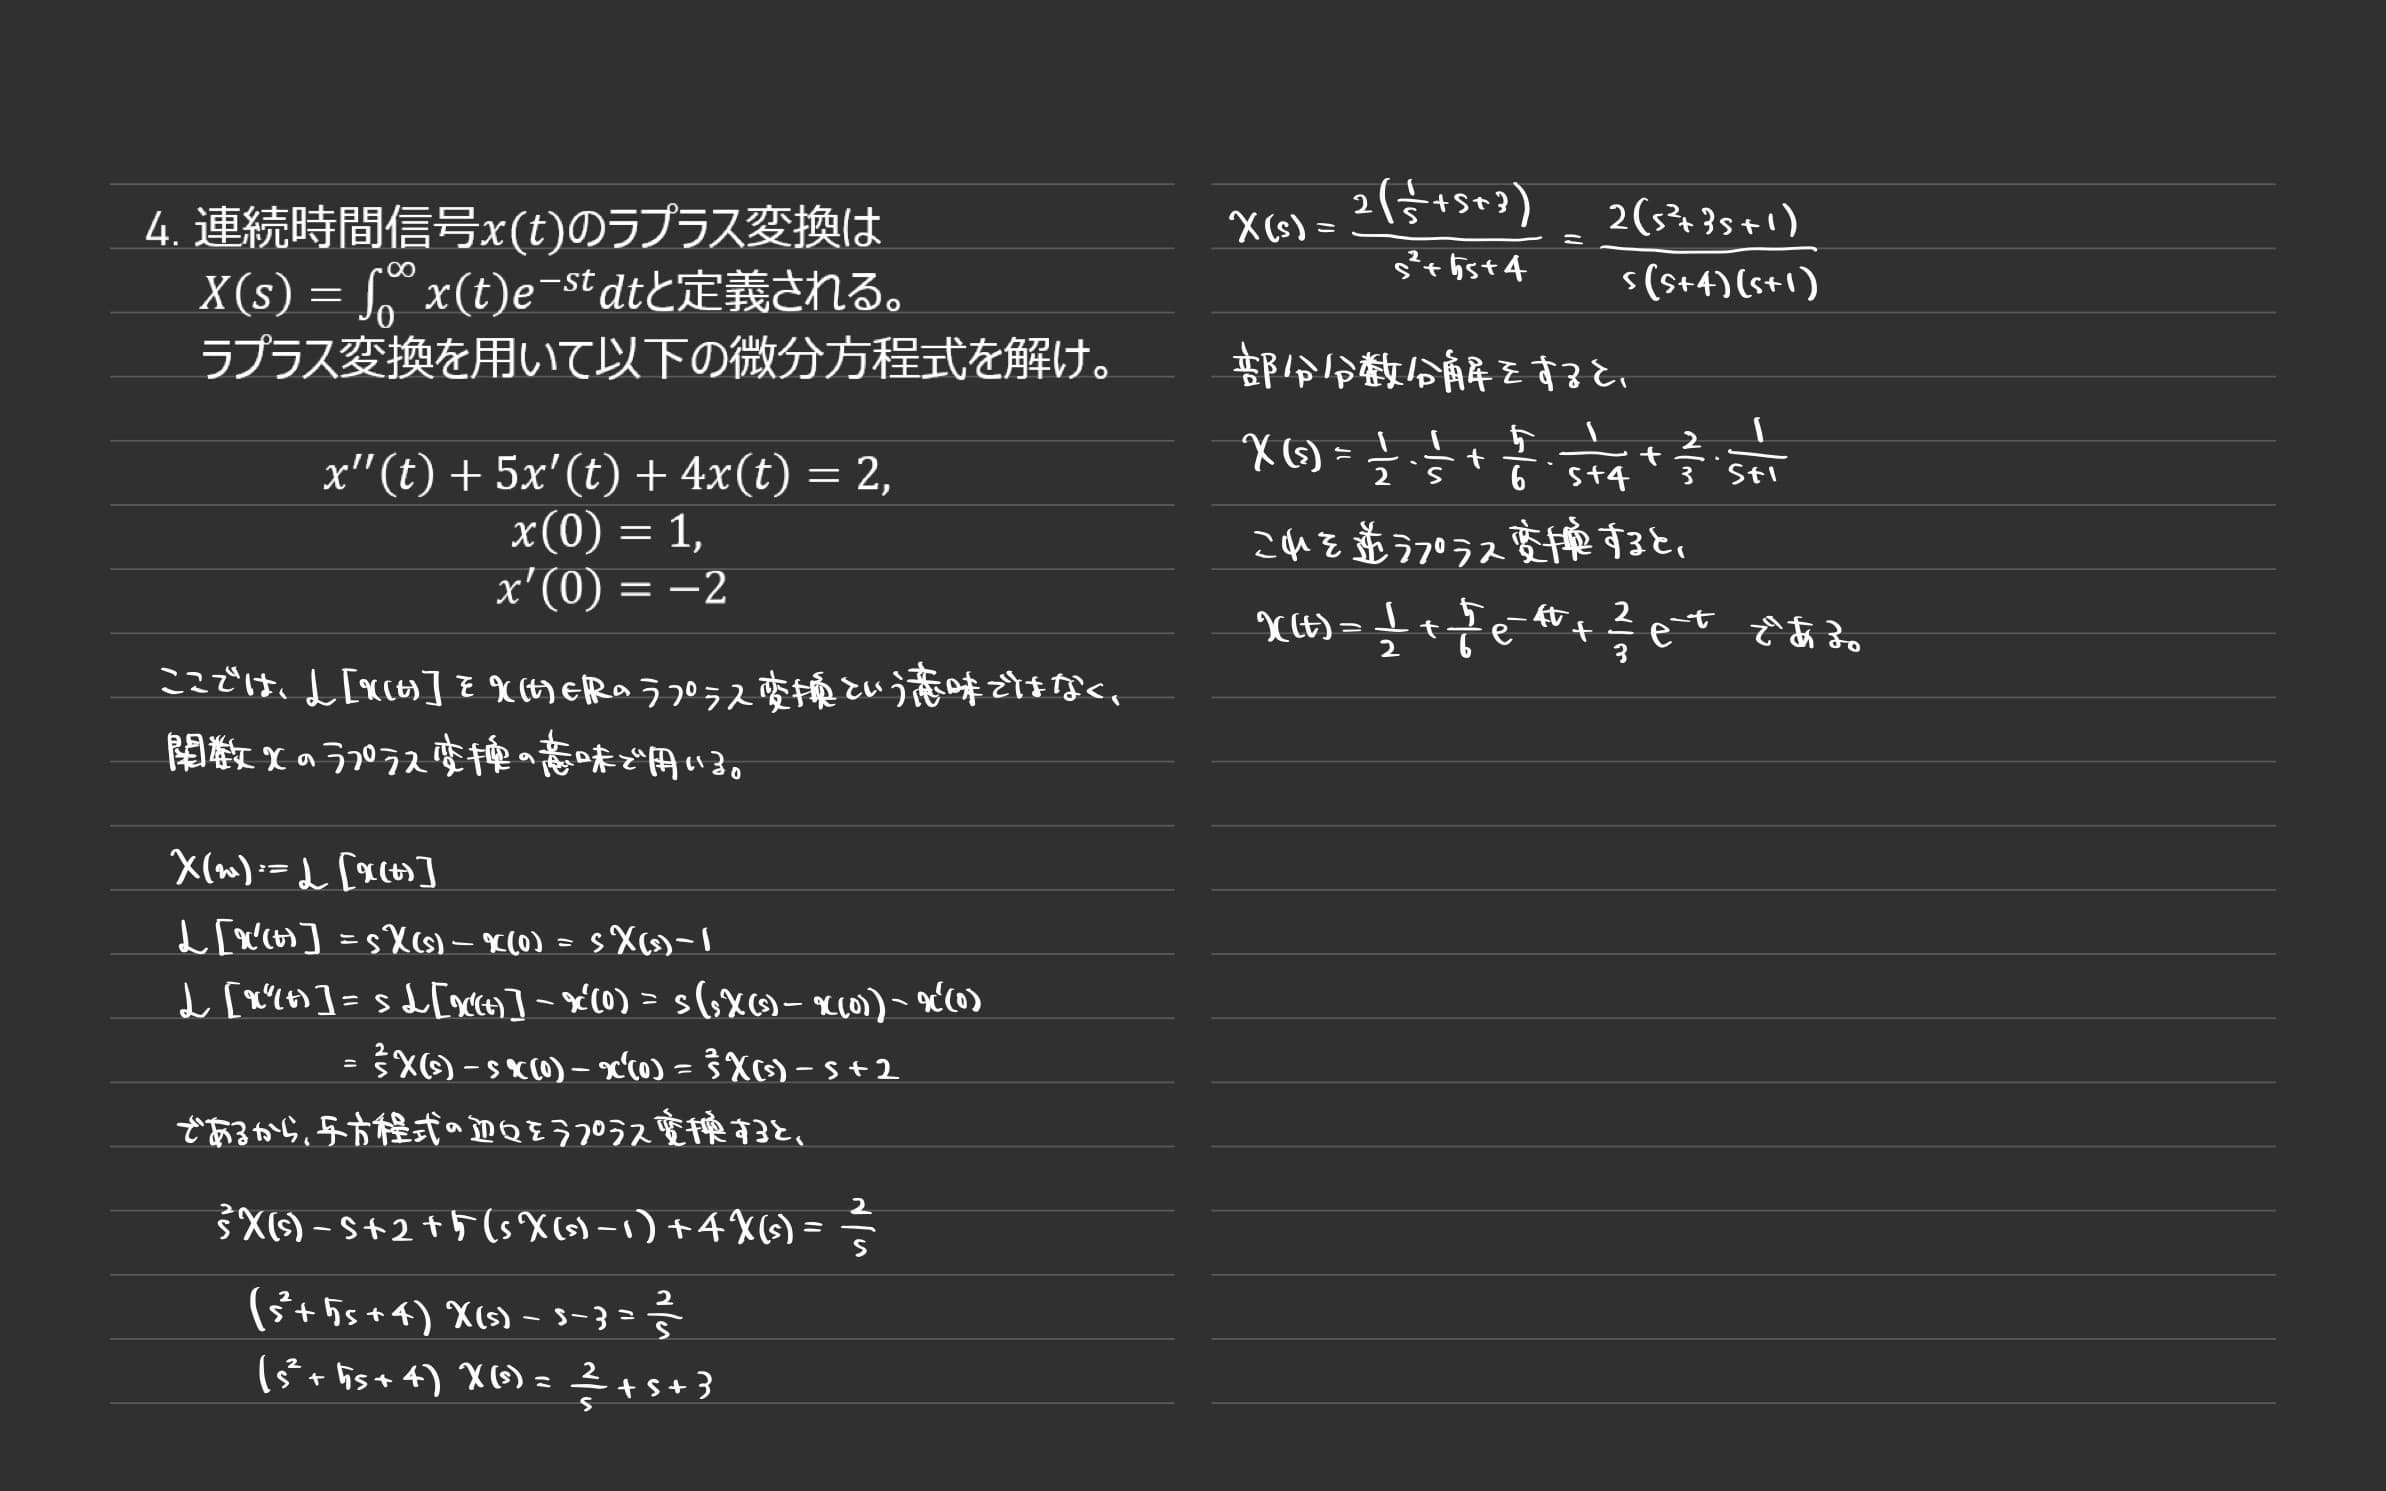 4. 連続時間信号x(t)のラプラス変換は
X(s) = ∫₀^∞ x(t)e^{-st}dtと定義される。
ラプラス変換を用いて以下の微分方程式を解け。
x''(t) + 5x'(t) + 4x(t) = 2,
x(0) = 1,
x'(0) = −2
ここでは、L[x(t)]をx(t)∈ℝのラプラス変換という意味ではなく、
関数xのラプラス変換の意味で用いる。
X(s) := L[x(t)]
L[x'(t)] = sX(s) − x(0) = sX(s) − 1
L[x''(t)] = sL[x'(t)] − x'(0) = s(sX(s) − x(0)) − x'(0)
= s²X(s) − sx(0) − x'(0) = s²X(s) − s + 2
であるから、与方程式の辺々をラプラス変換すると、
s²X(s) − s + 2 + 5(sX(s) − 1) + 4X(s) = 2/s
(s² + 5s + 4) X(s) − s − 3 = 2/s
(s² + 5s + 4) X(s) = 2/s + s + 3
X(s) = 2(1/s + s + 3)/(s² + 5s + 4) = 2(s² + 3s + 1)/(s(s+4)(s+1))
部分分数分解をすると、
X(s) = 1/2 · 1/s + 5/6 · 1/(s+4) + 2/3 · 1/(s+1)
これを逆ラプラス変換すると、
x(t) = 1/2 + 5/6 e^{-4t} + 2/3 e^{-t} である。